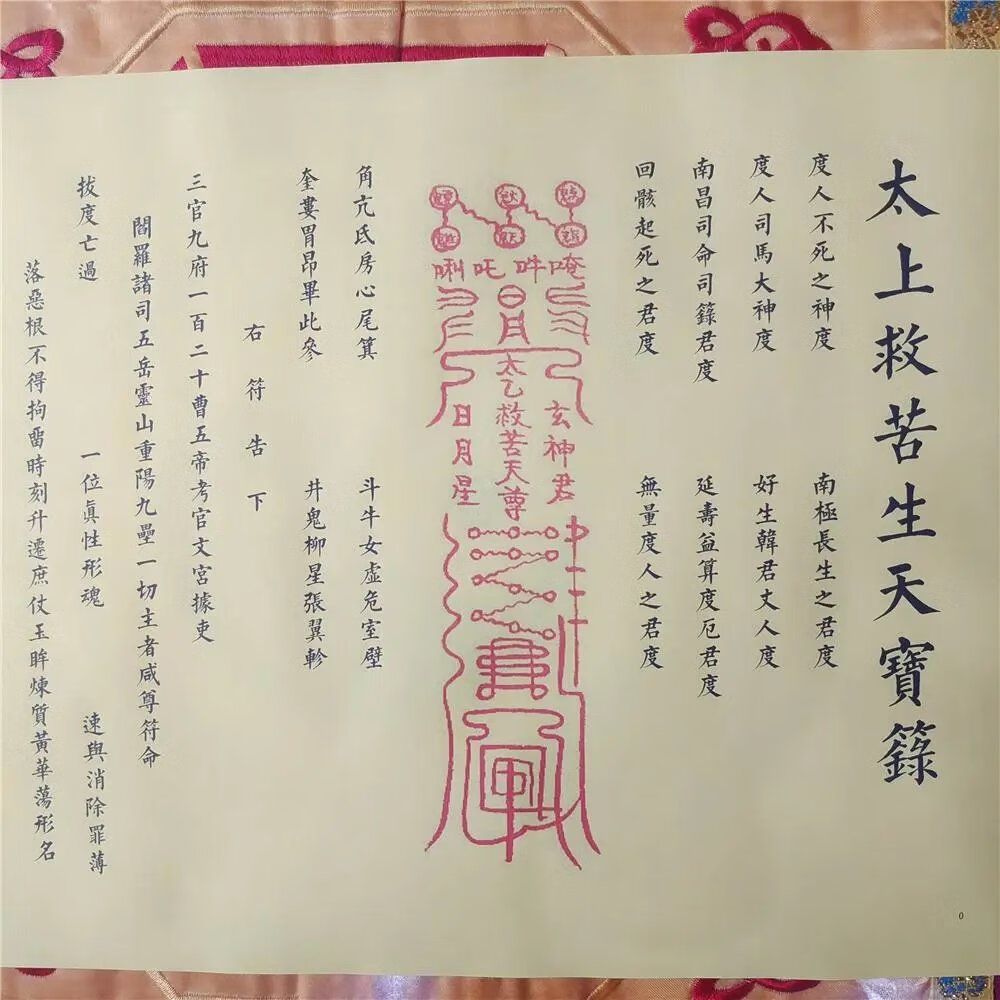 太上救苦生天寶籙
度人不死之神度　南極長生之君度
度人司馬大神度　好生韓君丈人度
南昌司命司錄君度　延壽益算度厄君度
回骸起死之君度　無量度人之君度
唵吽吒唎
日月
玄神君
太乙救苦天尊
日月星
角亢氐房心尾箕　斗牛女虛危室壁
奎婁胃昂畢此參　井鬼柳星張翼軫
右符告下
三官九府一百二十曹五帝考官文宮據吏
閻羅諸司五岳靈山重陽九壘一切主者咸尊符命
拔度亡過　一位眞性形魂　速與消除罪薄
落惡根不得拘畱時刻升遷庶仗玉眸煉質黃華蕩形名
0